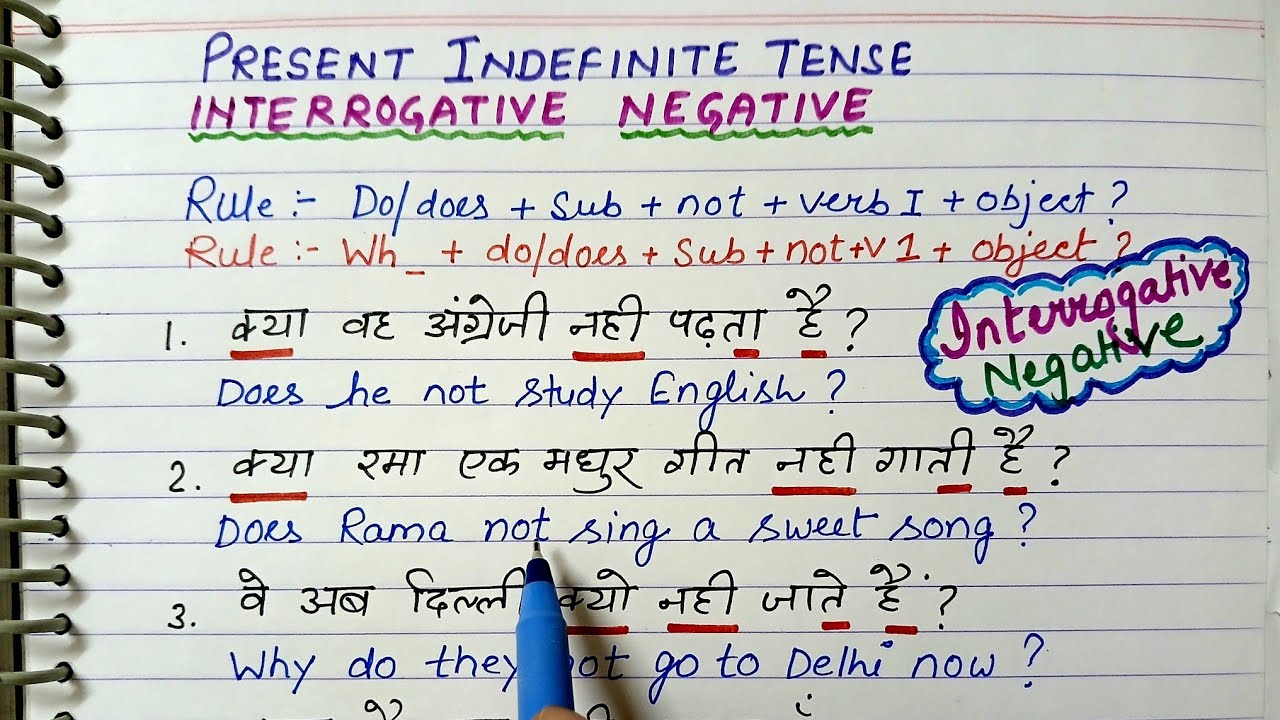 PRESENT INDEFINITE TENSE
INTERROGATIVE NEGATIVE
Rule :- Do/does + sub + not + verb I + object ?
Rule :- Wh_ + do/does + sub + not + v 1 + object ?
Interrogative
Negative
1. क्या वह अंग्रेजी नही पढ़ता है ?
Does he not study English ?
2. क्या रमा एक मधुर गीत नही गाती है ?
Does Rama not sing a sweet song ?
3. वे अब दिल्ली क्यो नही जाते हैं ?
Why do they not go to Delhi now ?